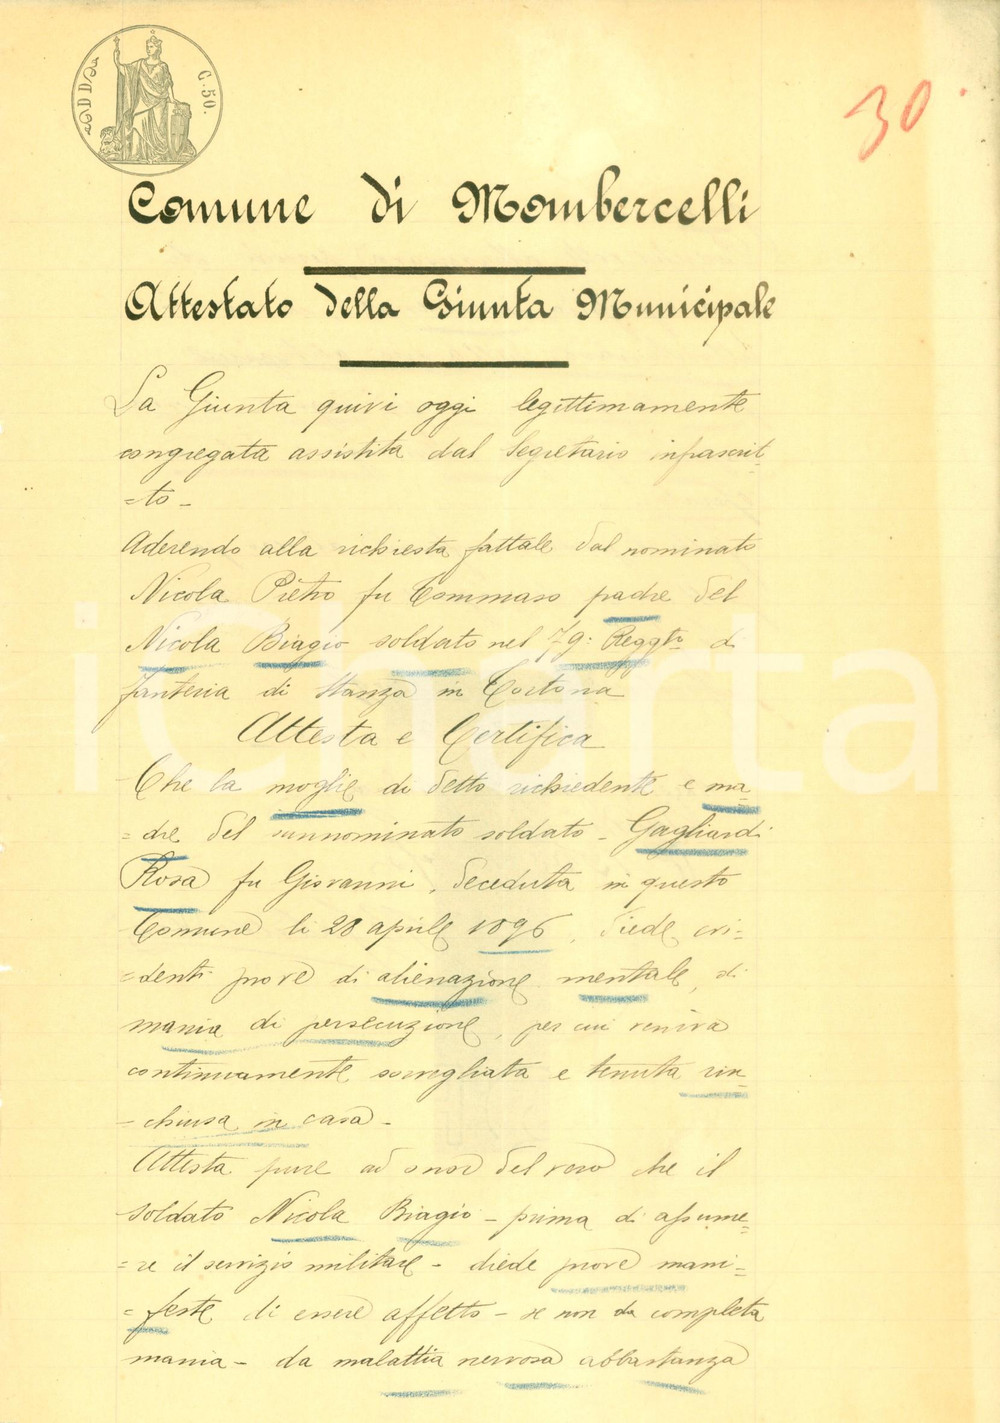 C. 50.
30
Comune di Mombercelli
Attestato della Giunta Municipale
La Giunta quivi oggi legittimamente
congregata assistita dal Segretario infrascrit
=to -
Aderendo alla richiesta fattale dal nominato
Nicola Pietro fu Tommaso padre del
Nicola Biagio soldato nel 79: Reggto di
fanteria di Stanza in Tortona
Attesta e Certifica
Che la moglie di detto richiedente e ma
=dre del sunnominato soldato - Gagliardi
Rosa fu Giovanni, deceduta in questo
Comune li 28 aprile 1896, diede evi=
=denti prove di alienazione mentale, di
mania di persecuzione, per cui veniva
continuamente sorvegliata e tenuta rin=
=chiusa in casa -
Attesta pure ad onor del vero che il
soldato Nicola Biagio - prima di assume=
=re il servizio militare - diede prove mani=
=feste di essere affetto - se non da completa
mania - da malattia nervosa abbastanza
iCharta